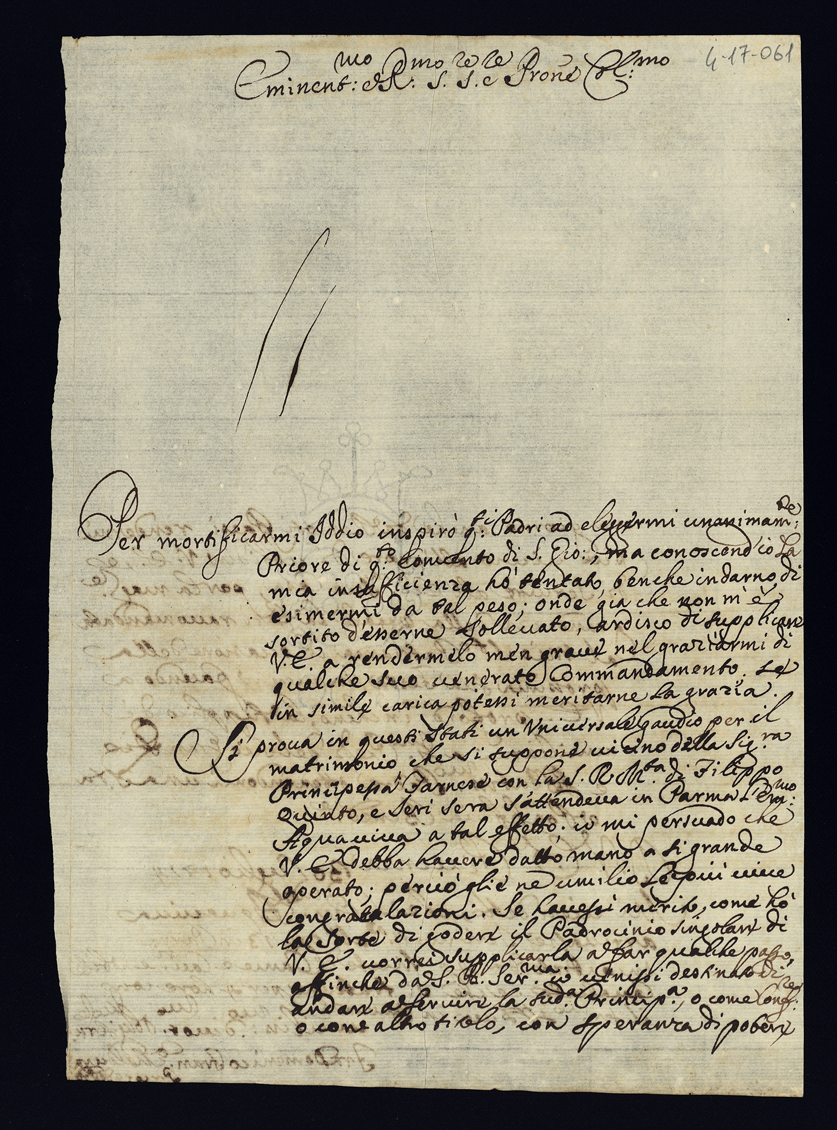 4-17-061
Eminent:mo e R:mo S.re S.re e Prone Col:mo
Per mortificarmi Iddio inspirò q:ti Padri ad eleggermi unanimam:te
Priore di q:to Convento di S. Gio:, ma conoscend'io la
mia insufficienza hò tentato, benche indarno, di
esimermi da tal peso; onde gia che non m'è
sortito d'esserne sollevato, ardisco di supplicare
V. E. a rendermelo men grave nel graziarmi di
qualche suo venerato Commandamento, se
in simile carica potessi meritarne la grazia.
Si prova in questi Stati un Vniversale gaudio per il
matrimonio che si suppone vicino della Sig.ra
Principessa Farnese con la S. R. M.tà di Filippo
Quinto, e Jeri sera s'attendeva in Parma l'Em:mo
Aquaviva a tal effetto. io mi persuado che
V. E. debba havere datto mano a si grande
operato; perciò gliè ne umilio le più vive
congratulazioni. Se havessi merito, come hò
la sorte di godere il Padrocinio singolare di
V. E. vorrei supplicarla a far qualche passo,
affinche da S. A. Ser.ma io venissi destinato di
andare a servire la sud.a Princip.a, o come Conf:re
o come altro titolo, con speranza di potere